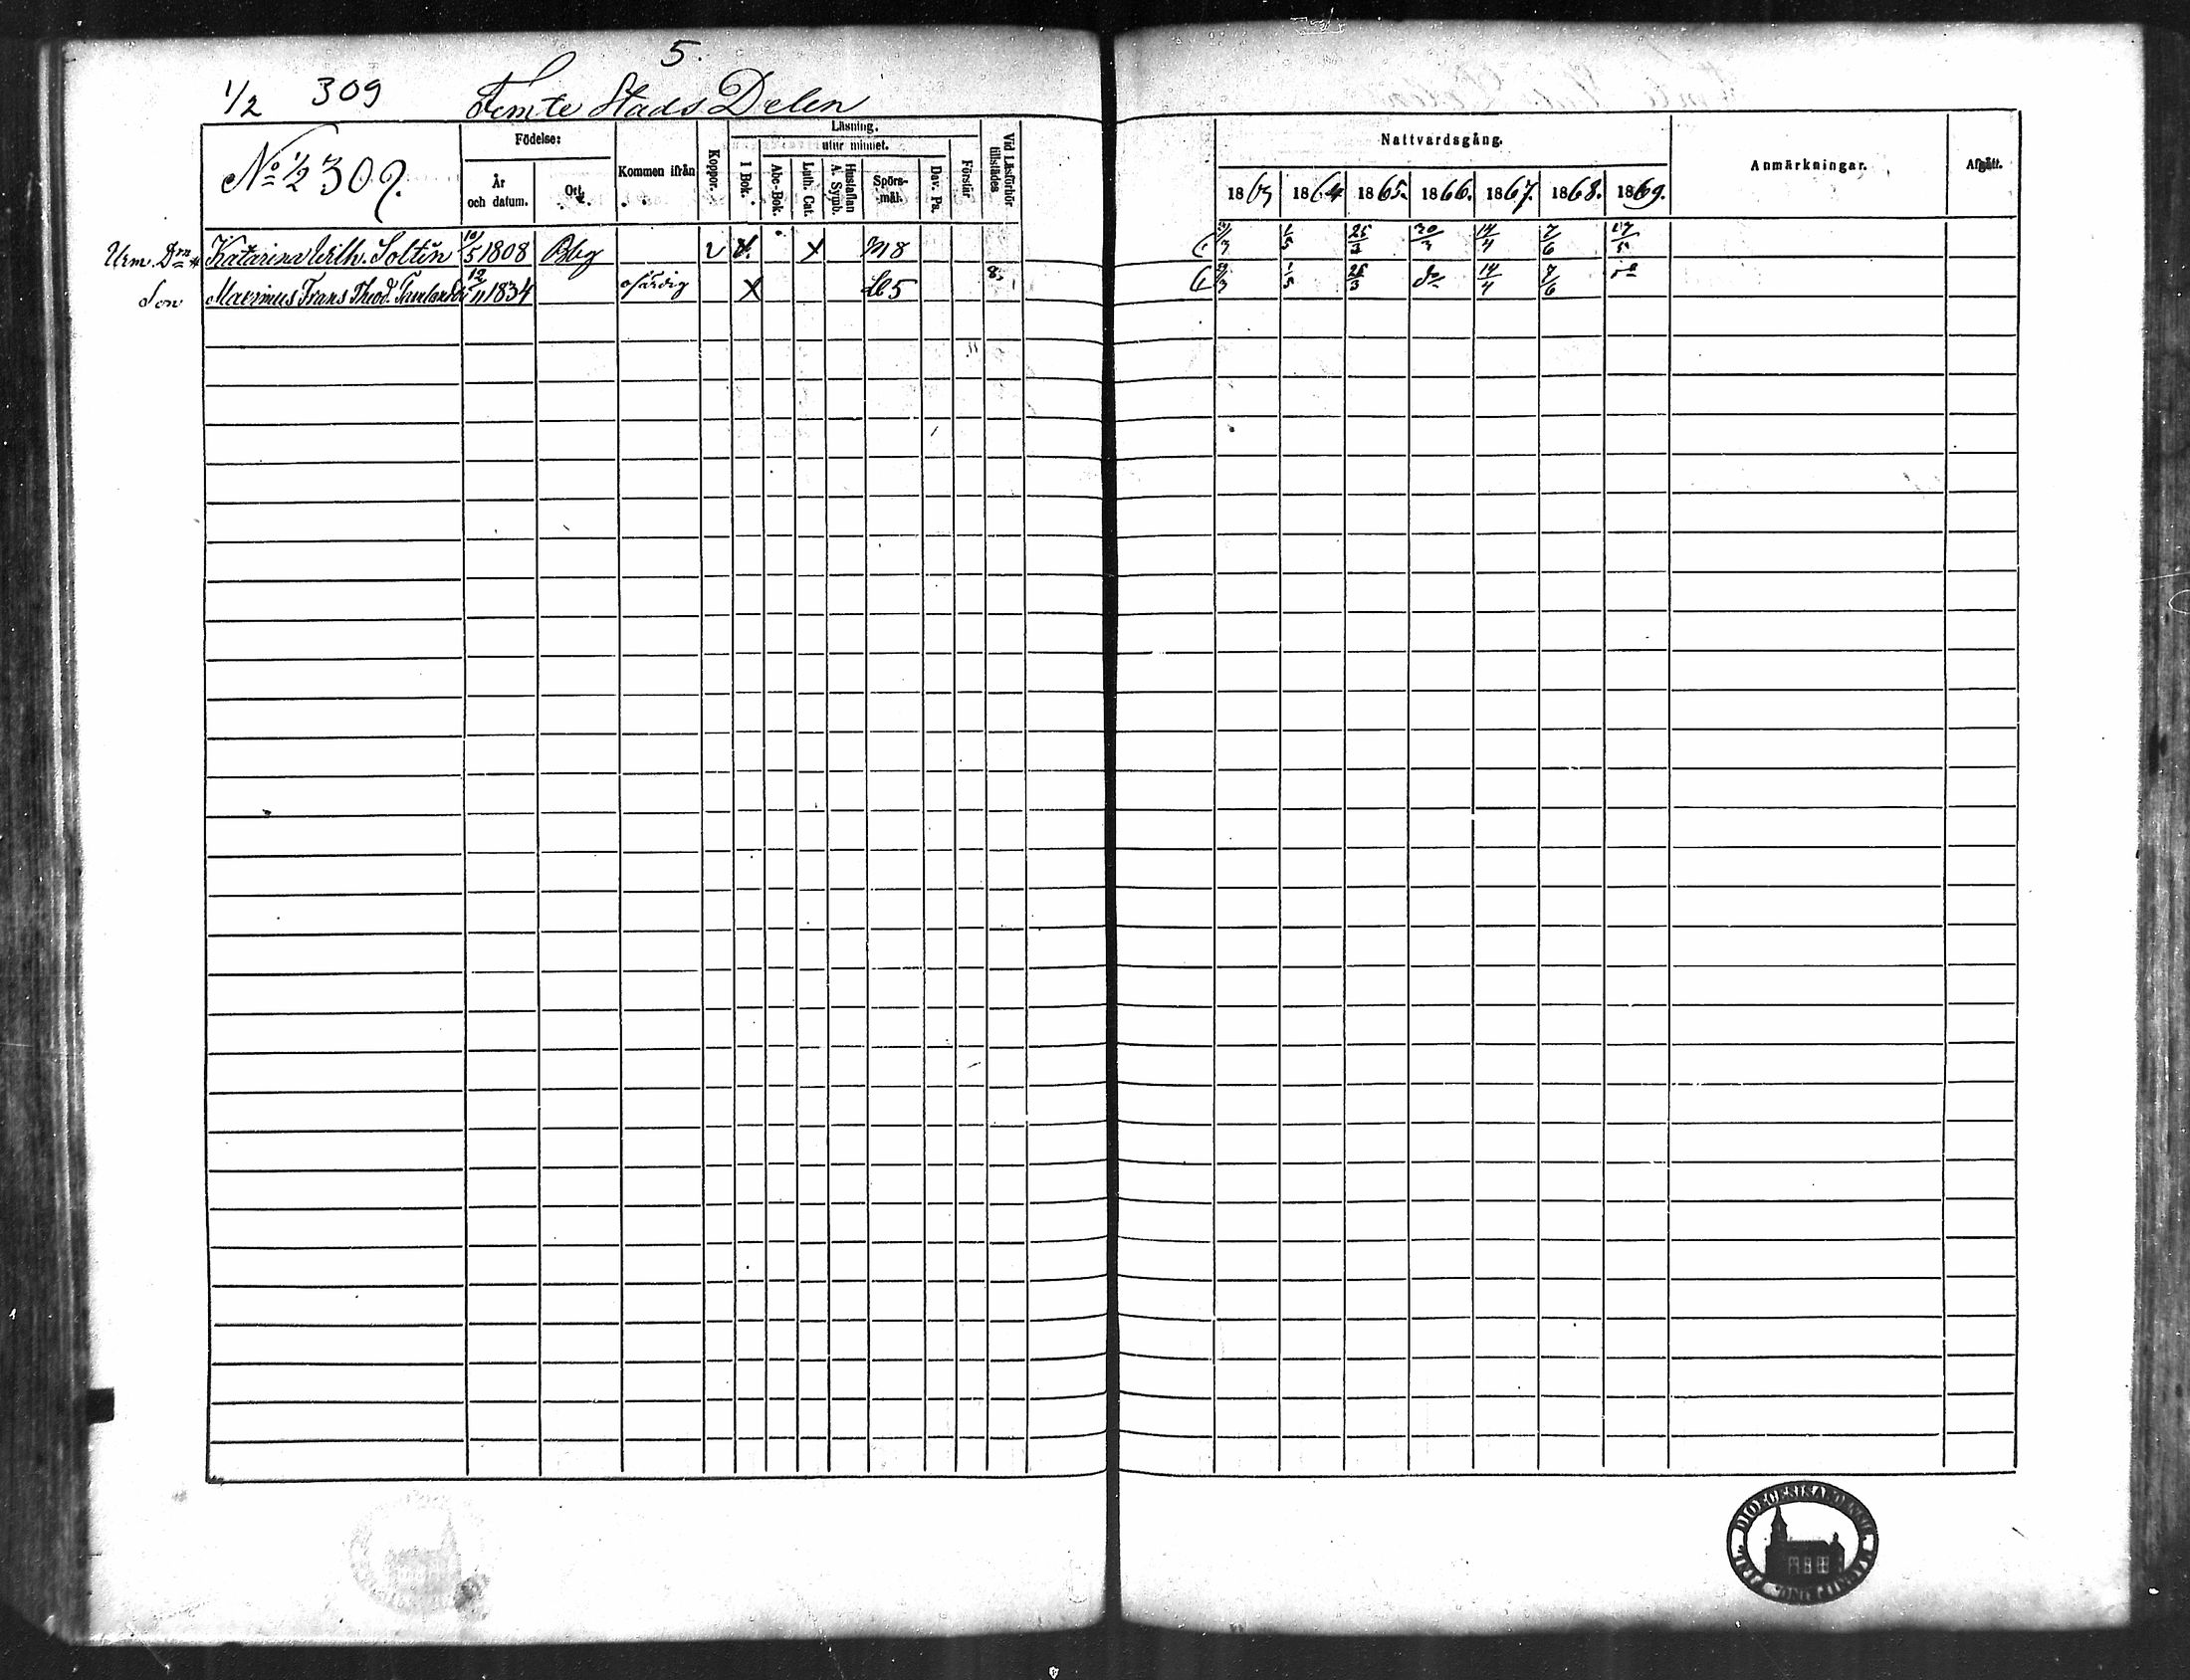 5.
1/2 309 Femte Stads Delen
No 1/2 309.
Födelse:
År och datum.
Ort.
Kommen ifrån
Koppor.
Läsning.
I Bok.
utur minnet.
Abc-Bok.
Luth. Cat.
Hustaflan A. Symb.
Spörsmål.
Dav. Ps.
Förstår
Vid Läsförhör tillstädes
Nattvardsgång.
1863 1864 1865. 1866. 1867. 1868. 1869.
Anmärkningar.
Afgått.
Katarina Vilh. Soltin 10/5 1808 Bbg v X. X M8 1/5 25/3 20/3 14/4 7/6 17/5
Son Maximus Frans Theod. 12/11 1834 ofärdig X 5 8. 1/5 25/3 do 14/4 7/6